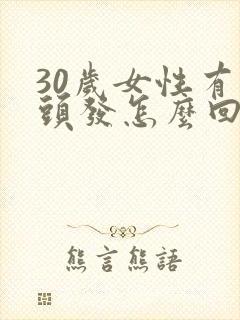 30歲女性有
頭發怎麼回
熊言熊語